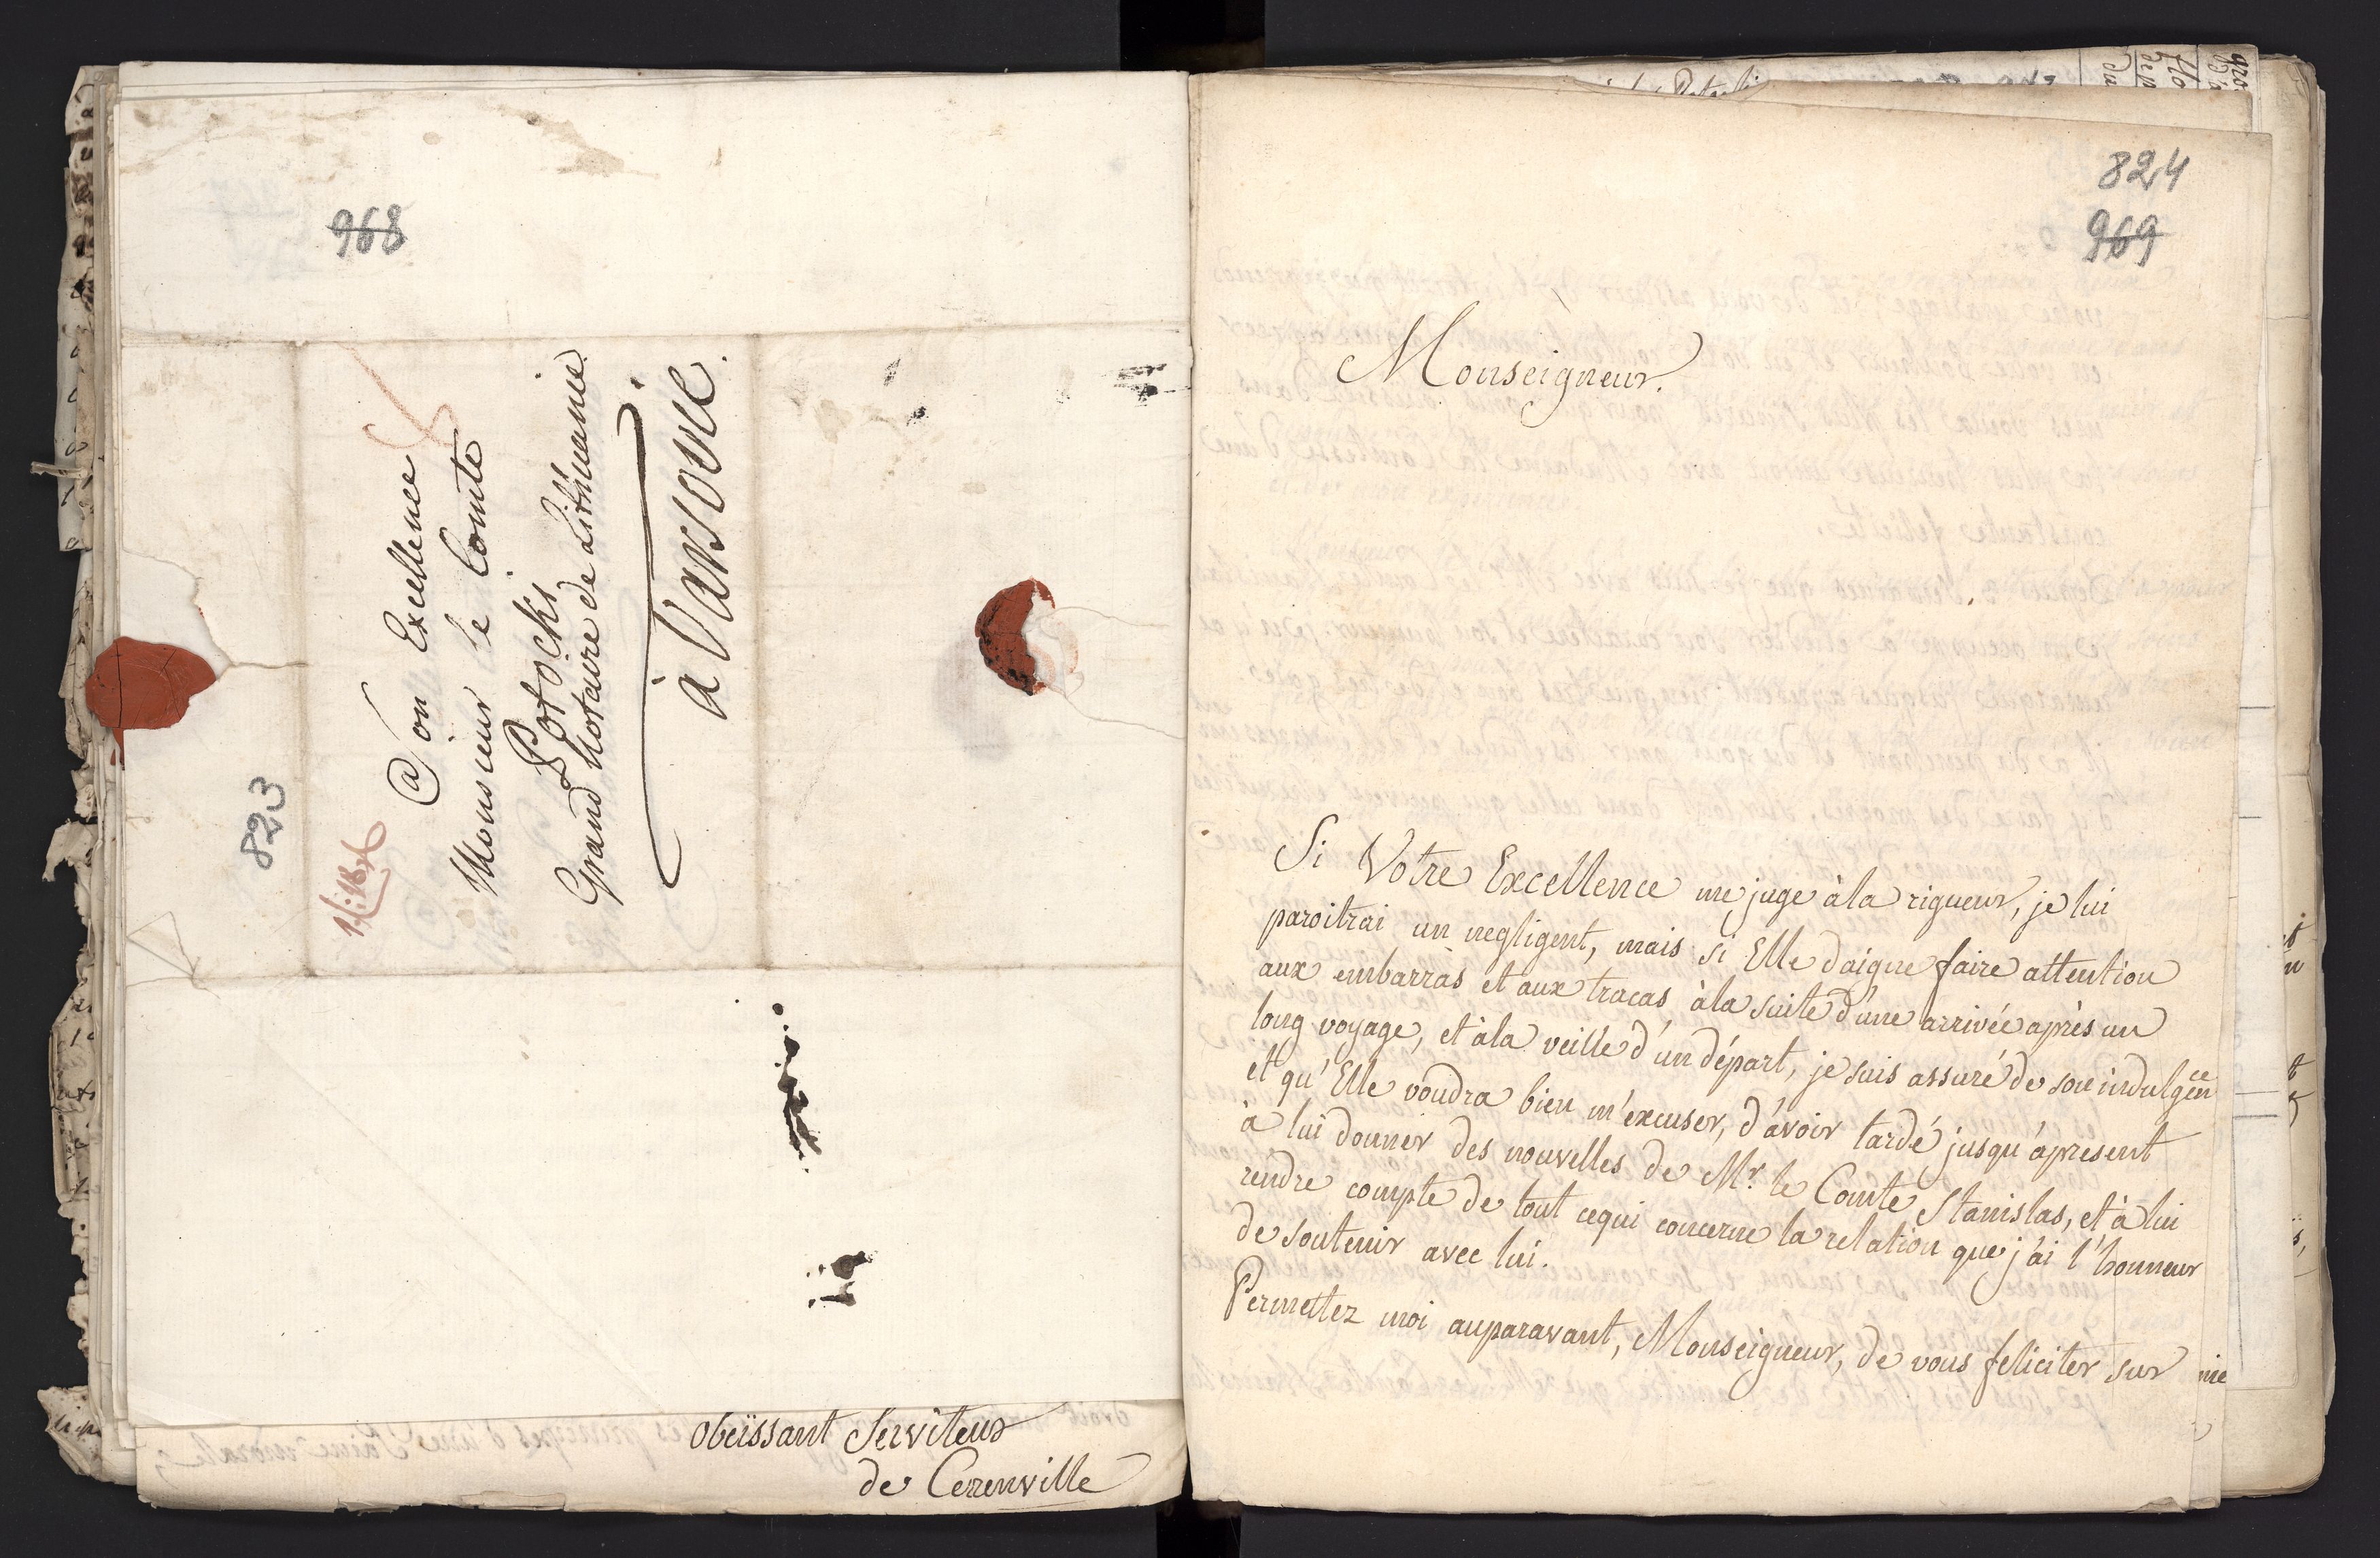 968
823
@ Son Excellence
Monsieur le Comte
Potocki
Grand Notaire de Lithuanie.
à Varsovie.
obeïssant Serviteur
de Cerenville
824
969
Monseigneur.
Si Votre Excellence me juge à la rigueur, je lui
paroitrai un negligent, mais si Elle daigne faire attention
aux embarras et aux tracas à la suite d'une arrivée après un
long voyage, et à la veille d'un départ, je suis assuré de son indulgence
et qu'Elle voudra bien m'excuser, d'avoir tardé jusqu'apresent
à lui donner des nouvelles de Mr. le Comte Stanislas, et à lui
rendre compte de tout cequi concerne la relation que j'ai l'honneur
de soutenir avec lui.
Permettez moi auparavant, Monseigneur, de vous feliciter sur